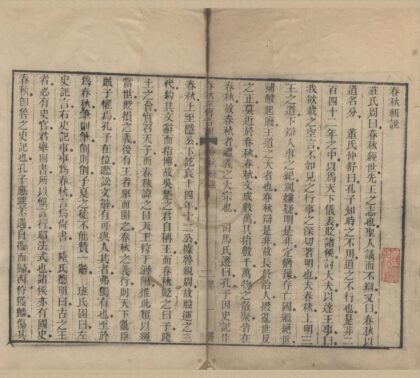 春秋輯說
莊氏周曰春秋經世先王之志也聖人議而不辯又曰春秋以
道名分 董氏仲舒曰孔子知時之不用道之不行也是非二
百四十二年之中以爲天下儀表貶諸侯討大夫以達王事曰
我欲載之空言不如見之行事之深切著明也夫春秋上明三
王之道下辯人事之紀別嫌疑明是非定猶豫存亡國繼絕世
補敝起廢王道之大者也春秋辯是非故長於治人撥亂世反
之正莫近於春秋春秋文成數萬其指數千萬物之散聚皆在
春秋故春秋者禮義之大宗也 司馬氏遷曰孔子因史記作
春秋上至隱公訖哀十四年十二公據魯親周故殷運之三
代約其文辭而指博故吳楚之君自稱王而春秋貶之曰子踐
土之會實召天子而春秋諱之曰天王狩于河陽推此類以繩
當世貶損之義後有王者舉而開之春秋之義行則天下亂臣
賊子懼焉孔子在位聽訟文辭有可與人共者弗獨有也至於
爲春秋筆則筆削則削子夏之徒不能贊一辭 班氏固曰左
史記言右史記事事爲春秋言爲尚書 陸氏德明曰古之王
者必有史官君舉則書所以慎言行昭法式也諸侯亦有國史
春秋卽魯之史記也孔子應聘不遇自衛而歸西狩獲麟傷其